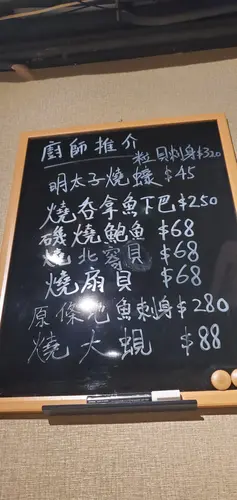 廚師推介
粒貝刺身$320
明太子燒蠔 $45
燒吞拿魚下巴$250
磯燒鮑魚 $68
燒北寄貝 $68
燒扇貝 $68
原條池魚刺身$280
燒大蜆 $88